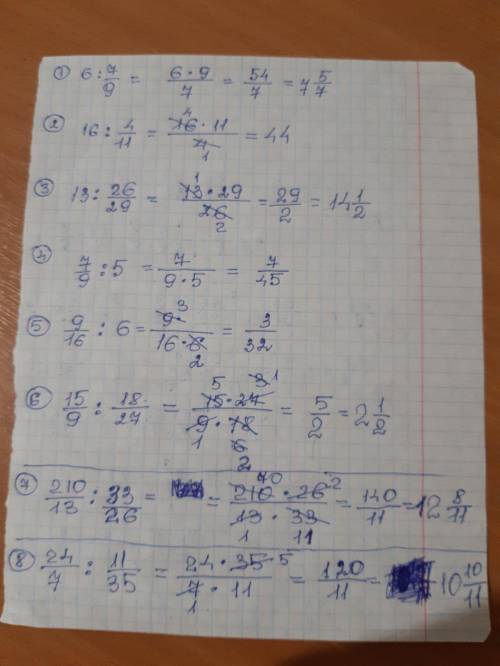 ① 6 : 7/9 = 6·9/7 = 54/7 = 7 5/7
② 16 : 4/11 = 16·11/4 = 44
③ 13 : 26/29 = 13·29/26 = 29/2 = 14 1/2
④ 7/9 : 5 = 7/9·5 = 7/45
⑤ 9/16 : 6 = 9·3/16·6 2 = 3/32
⑥ 15/9 : 18/27 = 15·27/9·18 = 5/2 = 2 1/2
⑦ 210/13 : 33/26 = 210·26/13·33 = 140/11 = 12 8/11
⑧ 24/7 : 11/35 = 24·35/7·11 = 120/11 = 10 10/11